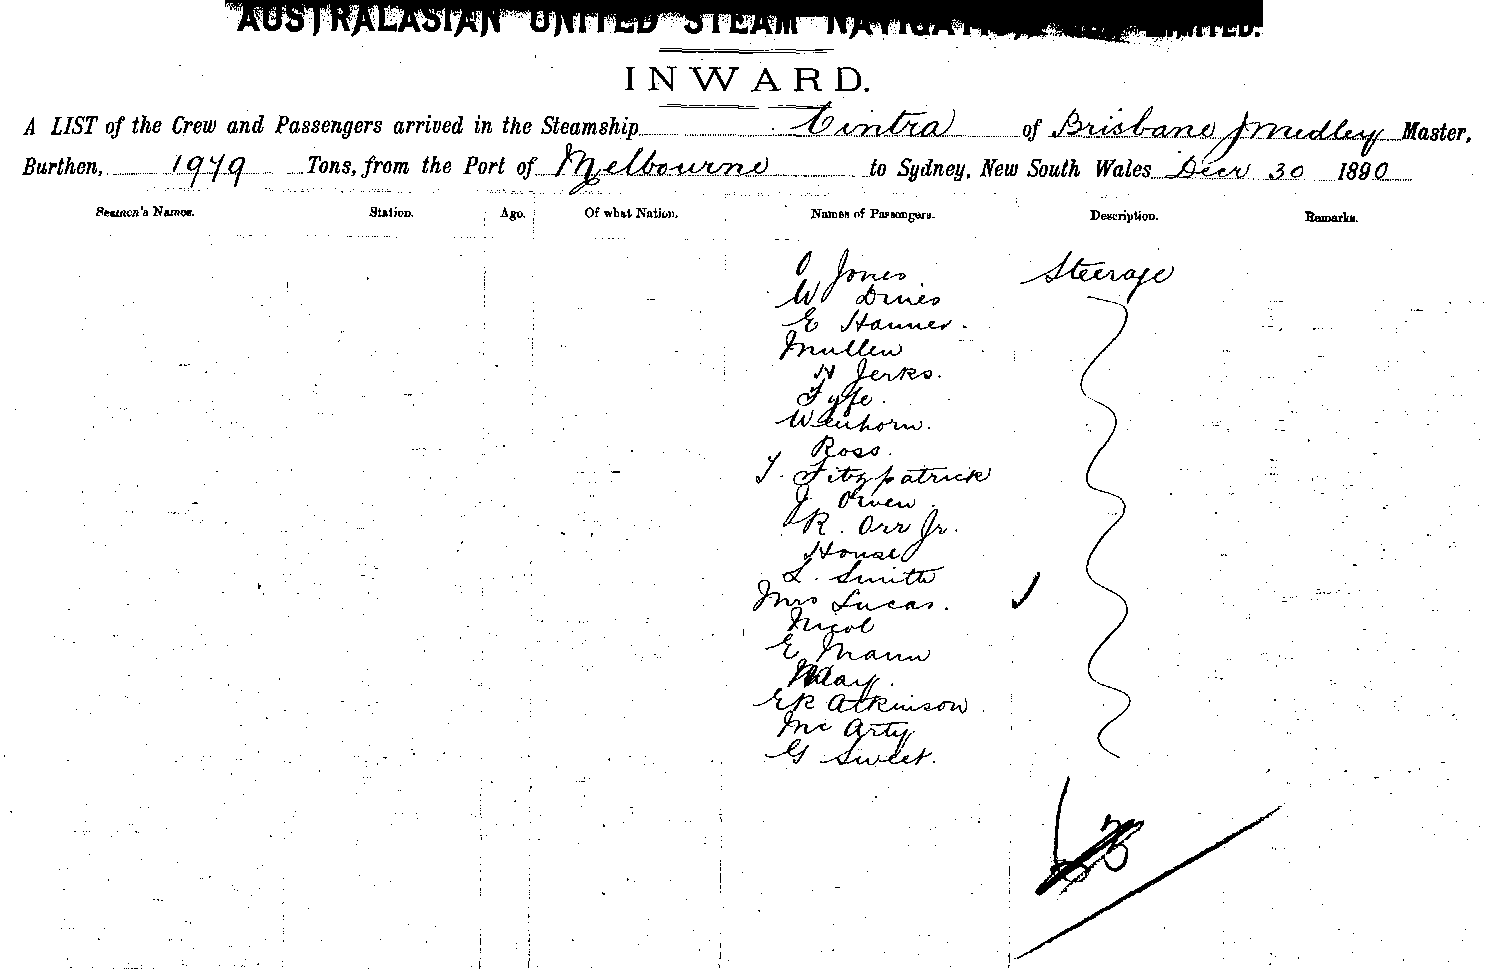 AUSTRALASIAN UNITED STEAM NAVIGATION COY LIMITED.
INWARD.
A LIST of the Crew and Passengers arrived in the Steamship Cintra of Brisbane J Medley Master,
Burthen, 1979 Tons, from the Port of Melbourne to Sydney, New South Wales Decr 30 1890
Seamen's Names. Station. Age. Of what Nation. Names of Passengers. Description. Remarks.
O Jones Steerage
W Dines
E Hanner.
Mullen
H Jerks.
Fyfe.
Wenhorn.
Ross.
T. Fitzpatrick
J Owen
R. Orr Jr.
House
L. Smith
Mrs Lucas.
Nicol
E Mann
May.
ER Atkinson
Mc Arty
G Sweet.